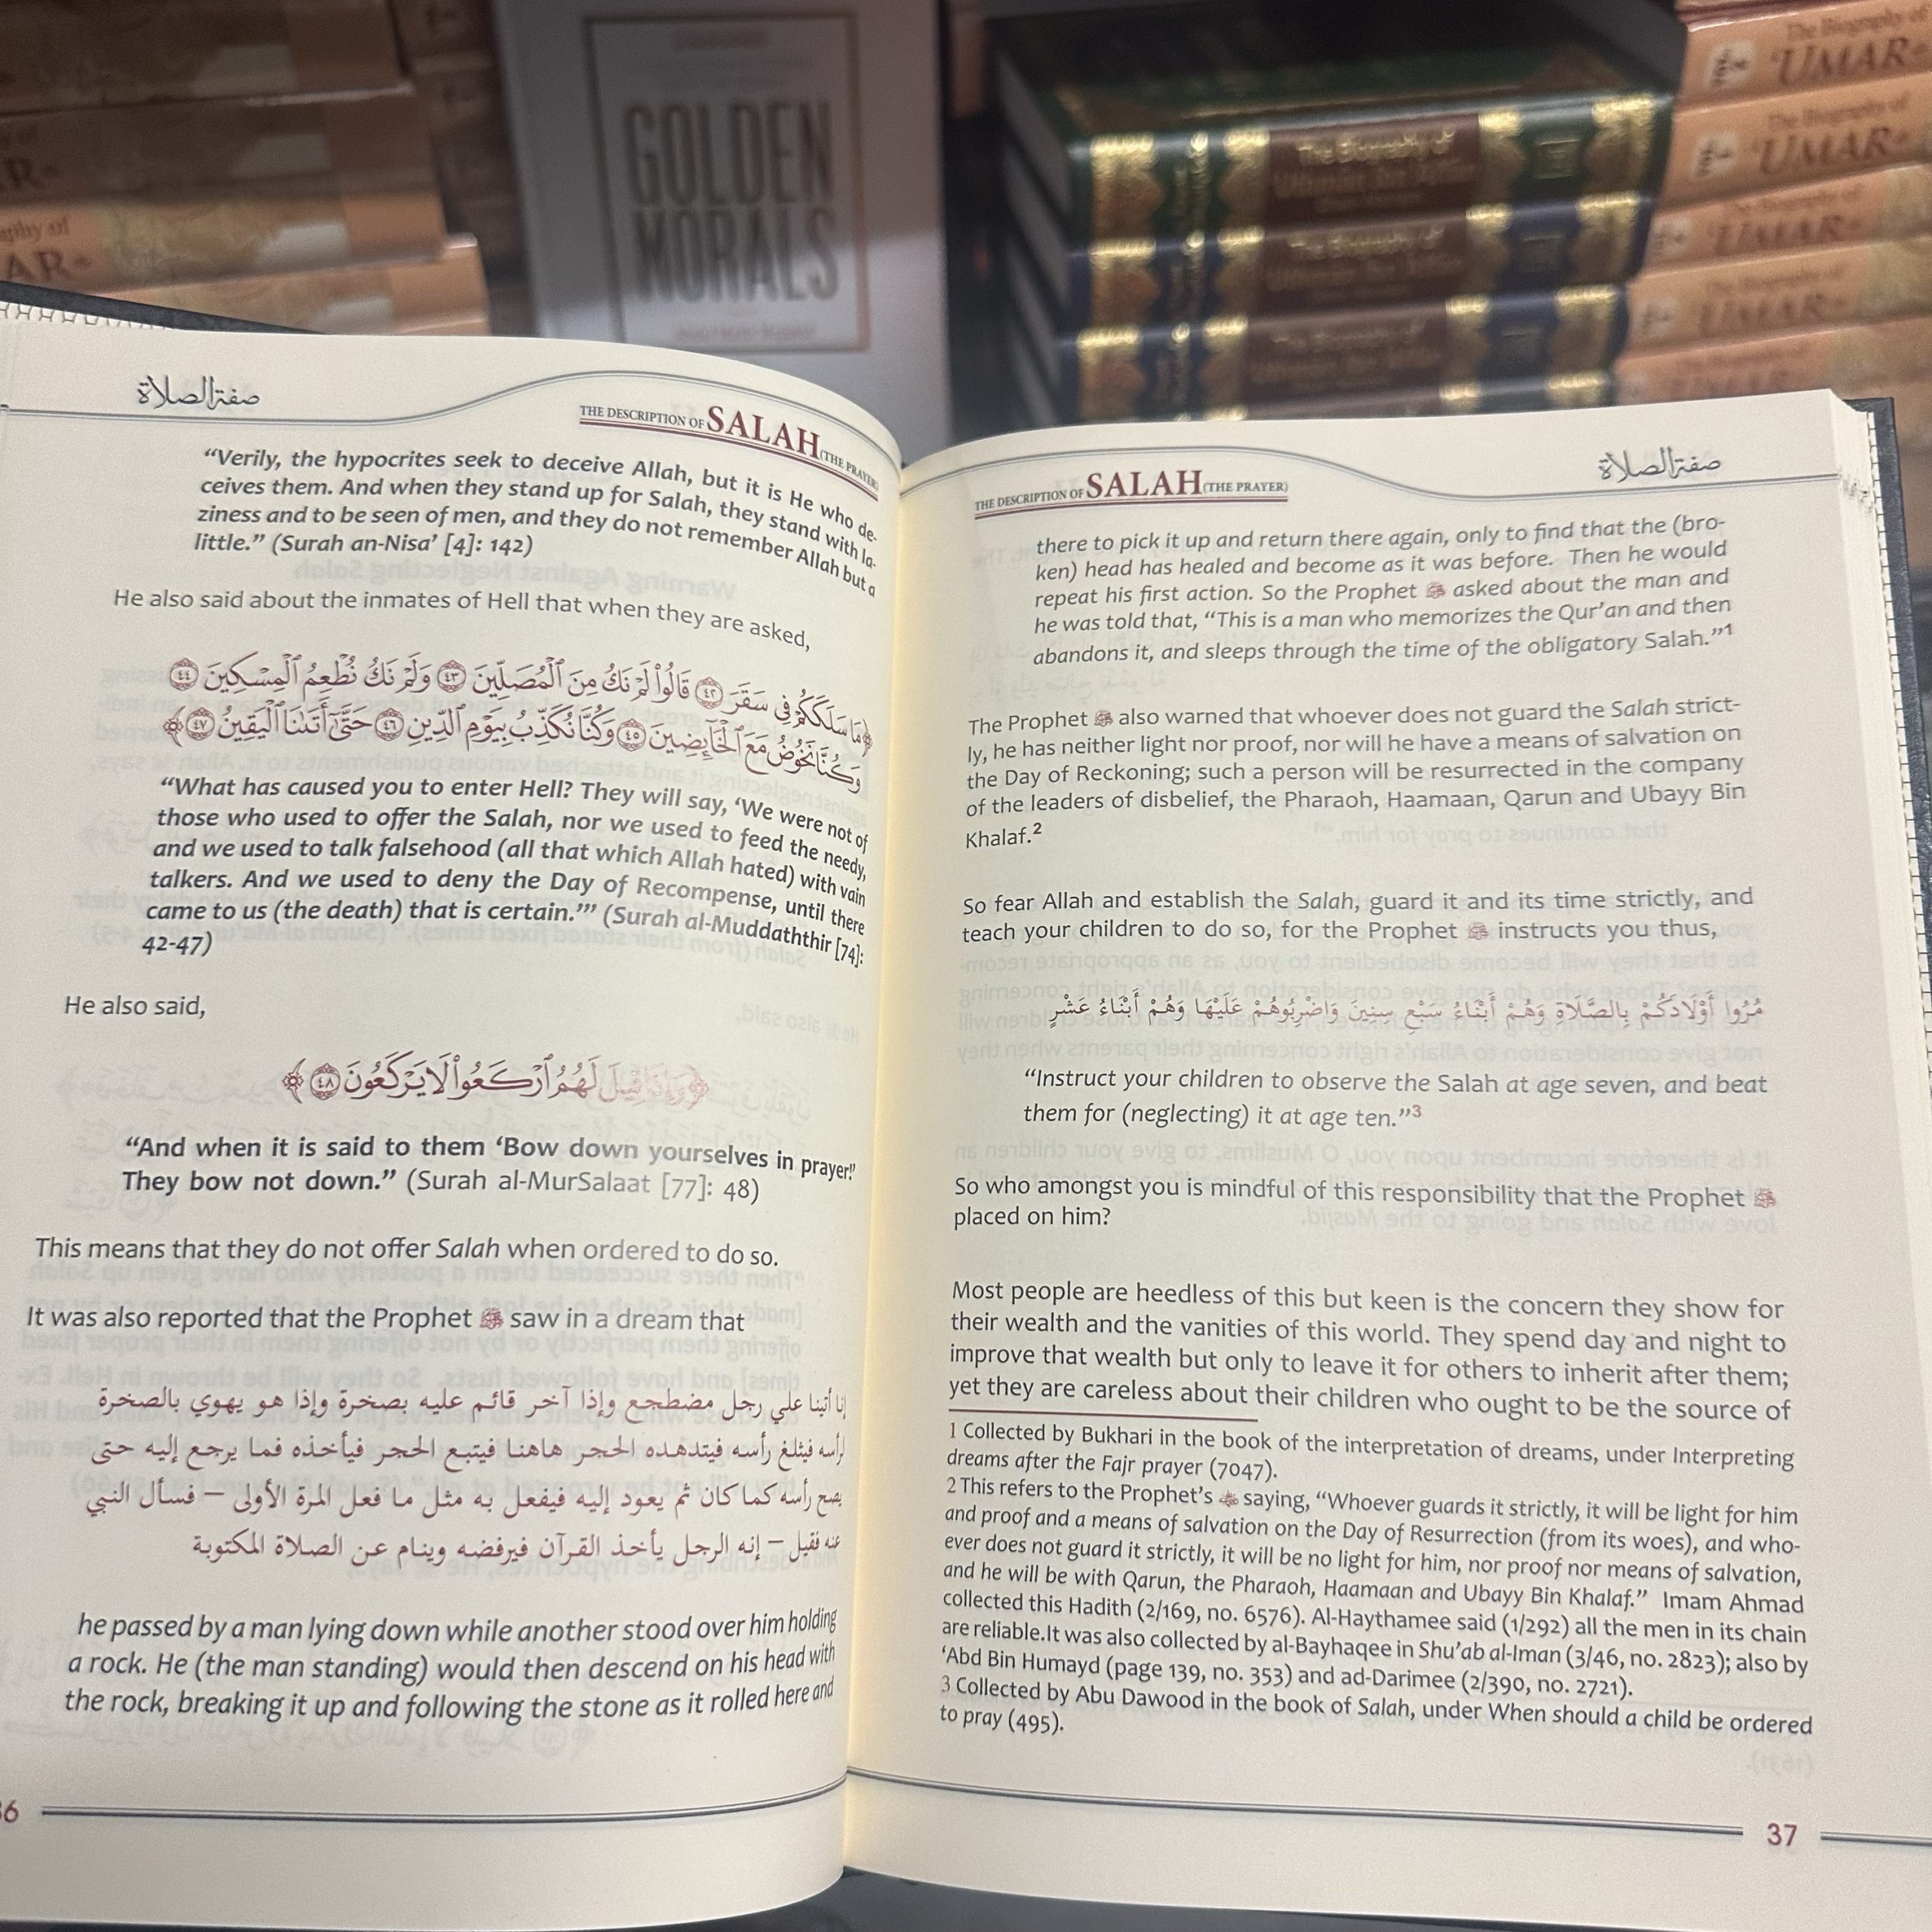 GOLDEN
MORALS
The Biography of
UMAR
The Biography of
UMAR
The Biography of
UMAR
The Biography of
UMAR
The Biography of
The Biography of
The Biography of
صفة الصلاة
THE DESCRIPTION OF SALAH (THE PRAYER)
“Verily, the hypocrites seek to deceive Allah, but it is He who de-
ceives them. And when they stand up for Salah, they stand with la-
ziness and to be seen of men, and they do not remember Allah but a
little.” (Surah an-Nisa’ [4]: 142)
He also said about the inmates of Hell that when they are asked,
﴿مَا سَلَكَكُمْ فِي سَقَرَ ۝٤٢ قَالُوا۟ لَمْ نَكُ مِنَ ٱلْمُصَلِّينَ ۝٤٣ وَلَمْ نَكُ نُطْعِمُ ٱلْمِسْكِينَ ۝٤٤
وَكُنَّا نَخُوضُ مَعَ ٱلْخَآئِضِينَ ۝٤٥ وَكُنَّا نُكَذِّبُ بِيَوْمِ ٱلدِّينِ ۝٤٦ حَتَّىٰٓ أَتَىٰنَا ٱلْيَقِينُ ۝٤٧﴾
“What has caused you to enter Hell? They will say, ‘We were not of
those who used to offer the Salah, nor we used to feed the needy,
and we used to talk falsehood (all that which Allah hated) with vain
talkers. And we used to deny the Day of Recompense, until there
came to us (the death) that is certain.’” (Surah al-Muddaththir [74]:
42-47)
He also said,
﴿وَإِذَا قِيلَ لَهُمُ ٱرْكَعُوا۟ لَا يَرْكَعُونَ ۝٤٨﴾
“And when it is said to them ‘Bow down yourselves in prayer!’
They bow not down.” (Surah al-MurSalaat [77]: 48)
This means that they do not offer Salah when ordered to do so.
It was also reported that the Prophet ﷺ saw in a dream that
إنا أتينا علي رجل مضطجع وإذا آخر قائم عليه بصخرة وإذا هو يهوي بالصخرة
لرأسه فيثلغ رأسه فيتدهده الحجر هاهنا فيتبع الحجر فيأخذه فما يرجع إليه حتى
يصح رأسه كما كان ثم يعود إليه فيفعل به مثل ما فعل المرة الأولى – فسأل النبي
عنه فقيل – إنه الرجل يأخذ القرآن فيرفضه وينام عن الصلاة المكتوبة
he passed by a man lying down while another stood over him holding
a rock. He (the man standing) would then descend on his head with
the rock, breaking it up and following the stone as it rolled here and
36
THE DESCRIPTION OF SALAH (THE PRAYER)
صفة الصلاة
there to pick it up and return there again, only to find that the (bro-
ken) head has healed and become as it was before. Then he would
repeat his first action. So the Prophet ﷺ asked about the man and
he was told that, “This is a man who memorizes the Qur’an and then
abandons it, and sleeps through the time of the obligatory Salah.”1
The Prophet ﷺ also warned that whoever does not guard the Salah strict-
ly, he has neither light nor proof, nor will he have a means of salvation on
the Day of Reckoning; such a person will be resurrected in the company
of the leaders of disbelief, the Pharaoh, Haamaan, Qarun and Ubayy Bin
Khalaf.2
So fear Allah and establish the Salah, guard it and its time strictly, and
teach your children to do so, for the Prophet ﷺ instructs you thus,
مُرُوا أَوْلَادَكُمْ بِالصَّلَاةِ وَهُمْ أَبْنَاءُ سَبْعِ سِنِينَ وَاضْرِبُوهُمْ عَلَيْهَا وَهُمْ أَبْنَاءُ عَشْرٍ
“Instruct your children to observe the Salah at age seven, and beat
them for (neglecting) it at age ten.”3
So who amongst you is mindful of this responsibility that the Prophet ﷺ
placed on him?
Most people are heedless of this but keen is the concern they show for
their wealth and the vanities of this world. They spend day and night to
improve that wealth but only to leave it for others to inherit after them;
yet they are careless about their children who ought to be the source of
1 Collected by Bukhari in the book of the interpretation of dreams, under Interpreting
dreams after the Fajr prayer (7047).
2 This refers to the Prophet’s ﷺ saying, “Whoever guards it strictly, it will be light for him
and proof and a means of salvation on the Day of Resurrection (from its woes), and who-
ever does not guard it strictly, it will be no light for him, nor proof nor means of salvation,
and he will be with Qarun, the Pharaoh, Haamaan and Ubayy Bin Khalaf.” Imam Ahmad
collected this Hadith (2/169, no. 6576). Al-Haythamee said (1/292) all the men in its chain
are reliable.It was also collected by al-Bayhaqee in Shu’ab al-Iman (3/46, no. 2823); also by
‘Abd Bin Humayd (page 139, no. 353) and ad-Darimee (2/390, no. 2721).
3 Collected by Abu Dawood in the book of Salah, under When should a child be ordered
to pray (495).
37